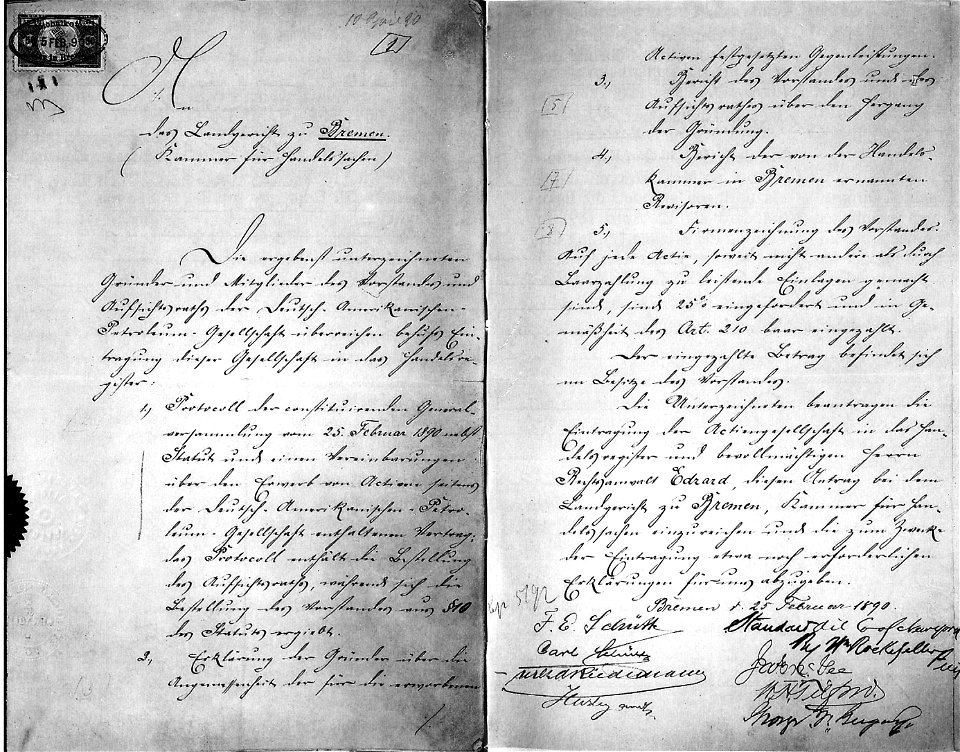 (1)
An
das Landgericht zu Bremen.
(Kammer für Handelssachen)
Die ergebenst unterzeichneten
Gründer und Mitglieder des Vorstandes und
Aufsichtsraths der Deutsch-Amerikanischen-
Petroleum-Gesellschaft überreichen behufs Ein-
tragung dieser Gesellschaft in das Handelsre-
gister:
1., Protocoll der constituirenden General-
versammlung vom 25. Februar 1890 nebst
Statut und einen Vereinbarungen
über den Erwerb von Activen seitens
der Deutsch-Amerikanischen-Petro-
leum-Gesellschaft enthaltenen Vertrag;
das Protocoll enthält die Bestellung
des Aufsichtsraths, während sich die
Bestellung des Vorstandes aus §10
des Statuts ergiebt.
2., Erklärung der Gründer über die
Angemessenheit der für die erworbenen
Activen festgesetzten Gegenleistungen.
3., Bericht des Vorstandes und des
(5)
Aufsichtsrathes über den Hergang
der Gründung.
4., Bericht der von der Handels-
(7)
kammer in Bremen ernannten
Revisoren.
(8)
5., Firmenzeichnung des Vorstandes.
Auf jede Actie, soweit nicht andere als durch
Baarzahlung zu leistende Einlagen gemacht
sind, sind 25% eingefordert und in Ge-
mäßheit des Art. 210 baar eingezahlt.
Der eingezahlte Betrag befindet sich
im Besitze des Vorstandes.
Die Unterzeichneten beantragen die
Eintragung der Actiengesellschaft in das Han-
delsregister und bevollmächtigen Herrn
Rechtsanwalt Edzard, diesen Antrag bei dem
Landgericht zu Bremen, Kammer für Han-
delssachen einzureichen und die zum Zwecke
der Eintragung etwa noch erforderlichen
Erklärungen für uns abzugeben.
Bremen d. 25 Februar 1890.
F. E. Schütte
Carl Schütte
Standard Oil Co of New York
Wm Rockefeller